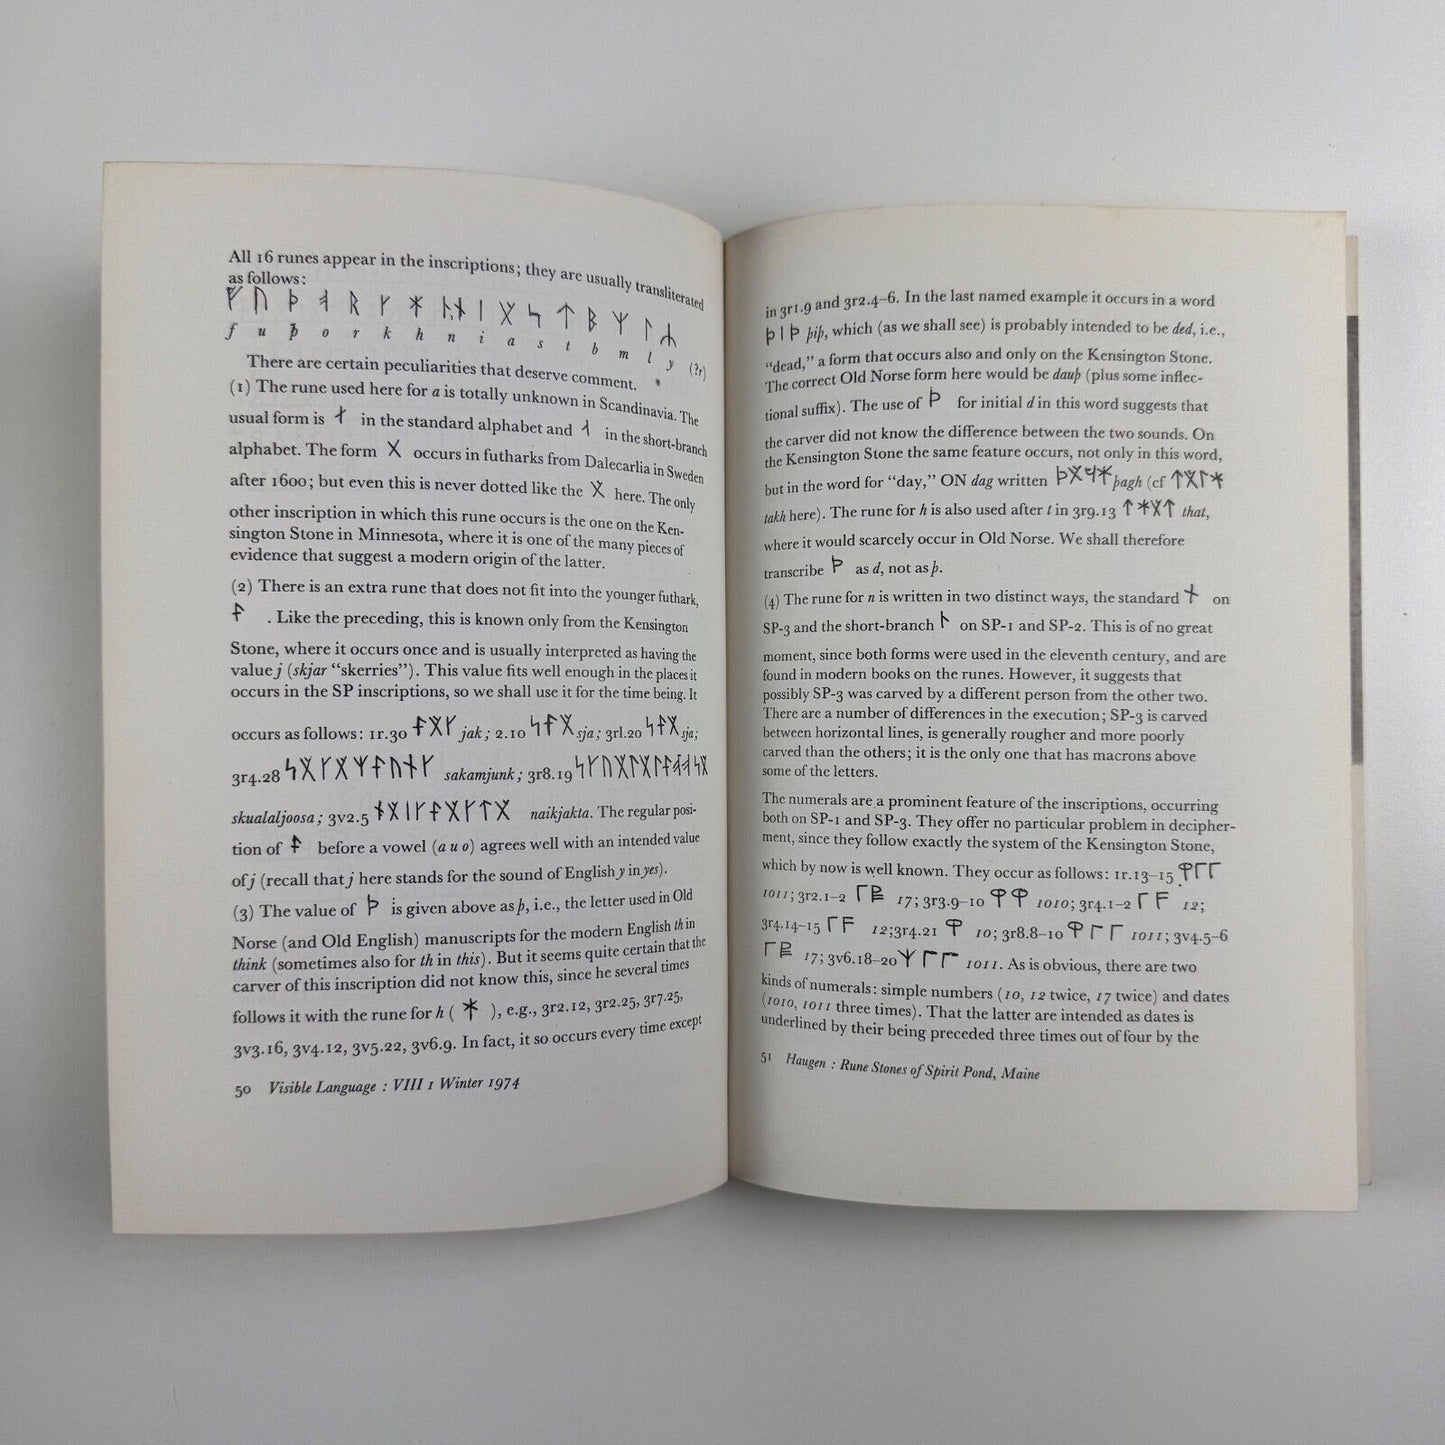 All 16 runes appear in the inscriptions; they are usually transliterated
as follows:
ᚠ ᚢ ᚦ ᚮ ᚱ ᚴ ᚼ ᚿ,ᚾ ᛁ ᛋ ᛏ ᛒ ᛚ
f u þ o r k h n i a s t b m l y (?r)
There are certain peculiarities that deserve comment.
(1) The rune used here for a is totally unknown in Scandinavia. The
usual form is ᛆ in the standard alphabet and in the short-branch
alphabet. The form occurs in futharks from Dalecarlia in Sweden
after 1600; but even this is never dotted like the here. The only
other inscription in which this rune occurs is the one on the Ken-
sington Stone in Minnesota, where it is one of the many pieces of
evidence that suggest a modern origin of the latter.
(2) There is an extra rune that does not fit into the younger futhark,
. Like the preceding, this is known only from the Kensington
Stone, where it occurs once and is usually interpreted as having the
value j (skjar "skerries"). This value fits well enough in the places it
occurs in the SP inscriptions, so we shall use it for the time being. It
occurs as follows: 1r.30 jak; 2.10 sja; 3rl.20 sja;
3r4.28 sakamjunk; 3r8.19
skualaljoosa; 3v2.5 naikjakta. The regular posi-
tion of before a vowel (a u o) agrees well with an intended value
of j (recall that j here stands for the sound of English y in yes).
(3) The value of ᚦ is given above as þ, i.e., the letter used in Old
Norse (and Old English) manuscripts for the modern English th in
think (sometimes also for th in this). But it seems quite certain that the
carver of this inscription did not know this, since he several times
follows it with the rune for h ( ᚼ ), e.g., 3r2.12, 3r2.25, 3r7.25,
3v3.16, 3v4.12, 3v5.22, 3v6.9. In fact, it so occurs every time except
50 Visible Language : VIII 1 Winter 1974
in 3r1.9 and 3r2.4–6. In the last named example it occurs in a word
ᚦᛁᚦ þiþ, which (as we shall see) is probably intended to be ded, i.e.,
"dead," a form that occurs also and only on the Kensington Stone.
The correct Old Norse form here would be dauþ (plus some inflec-
tional suffix). The use of ᚦ for initial d in this word suggests that
the carver did not know the difference between the two sounds. On
the Kensington Stone the same feature occurs, not only in this word,
but in the word for "day," ON dag written þagh (cf
takh here). The rune for h is also used after t in 3r9.13 that,
where it would scarcely occur in Old Norse. We shall therefore
transcribe ᚦ as d, not as þ.
(4) The rune for n is written in two distinct ways, the standard ᚾ on
SP-3 and the short-branch ᚿ on SP-1 and SP-2. This is of no great
moment, since both forms were used in the eleventh century, and are
found in modern books on the runes. However, it suggests that
possibly SP-3 was carved by a different person from the other two.
There are a number of differences in the execution; SP-3 is carved
between horizontal lines, is generally rougher and more poorly
carved than the others; it is the only one that has macrons above
some of the letters.
The numerals are a prominent feature of the inscriptions, occurring
both on SP-1 and SP-3. They offer no particular problem in decipher-
ment, since they follow exactly the system of the Kensington Stone,
which by now is well known. They occur as follows: 1r.13–15
1011; 3r2.1–2 17; 3r3.9–10 1010; 3r4.1–2 12;
3r4.14–15 12;3r4.21 10; 3r8.8–10 1011; 3v4.5–6
17; 3v6.18–20 1011. As is obvious, there are two
kinds of numerals: simple numbers (10, 12 twice, 17 twice) and dates
(1010, 1011 three times). That the latter are intended as dates is
underlined by their being preceded three times out of four by the
51 Haugen : Rune Stones of Spirit Pond, Maine